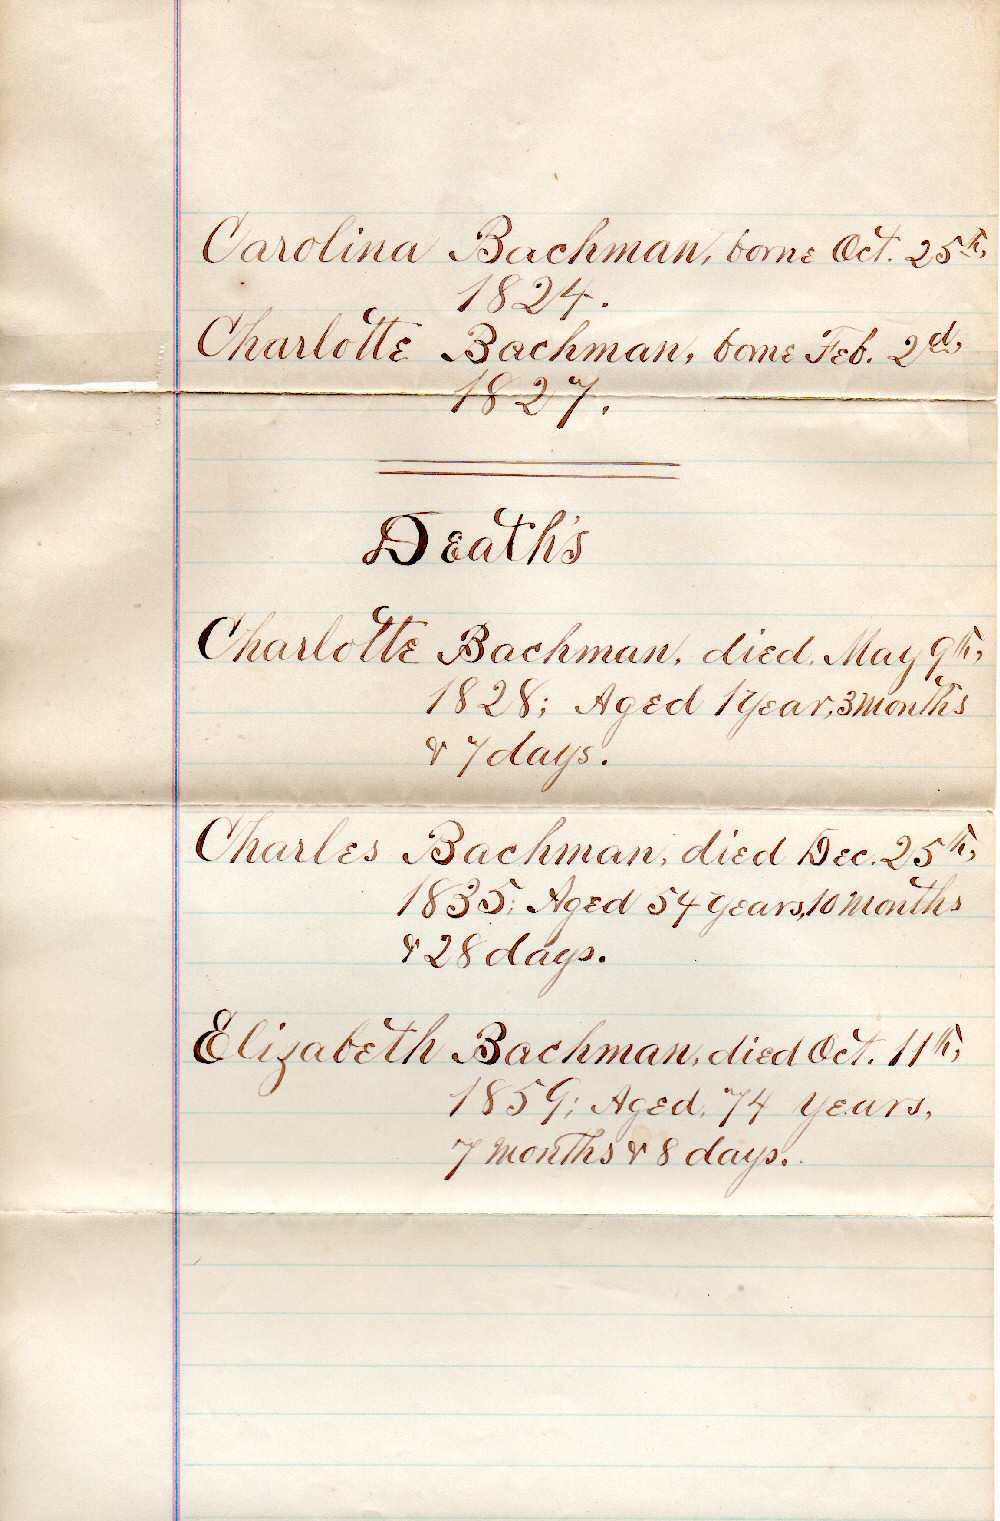 Carolina Bachman, borne Oct. 25th,
1824.
Charlotte Bachman, borne Feb. 2d,
1827.
Death's
Charlotte Bachman, died, May 9th,
1828; Aged 1 Year, 3 Months
& 7 days.
Charles Bachman, died Dec. 25th,
1835; Aged 54 years, 10 Months
& 28 days.
Elizabeth Bachman, died Oct. 11th,
1859; Aged, 74 years,
7 Months & 8 days.